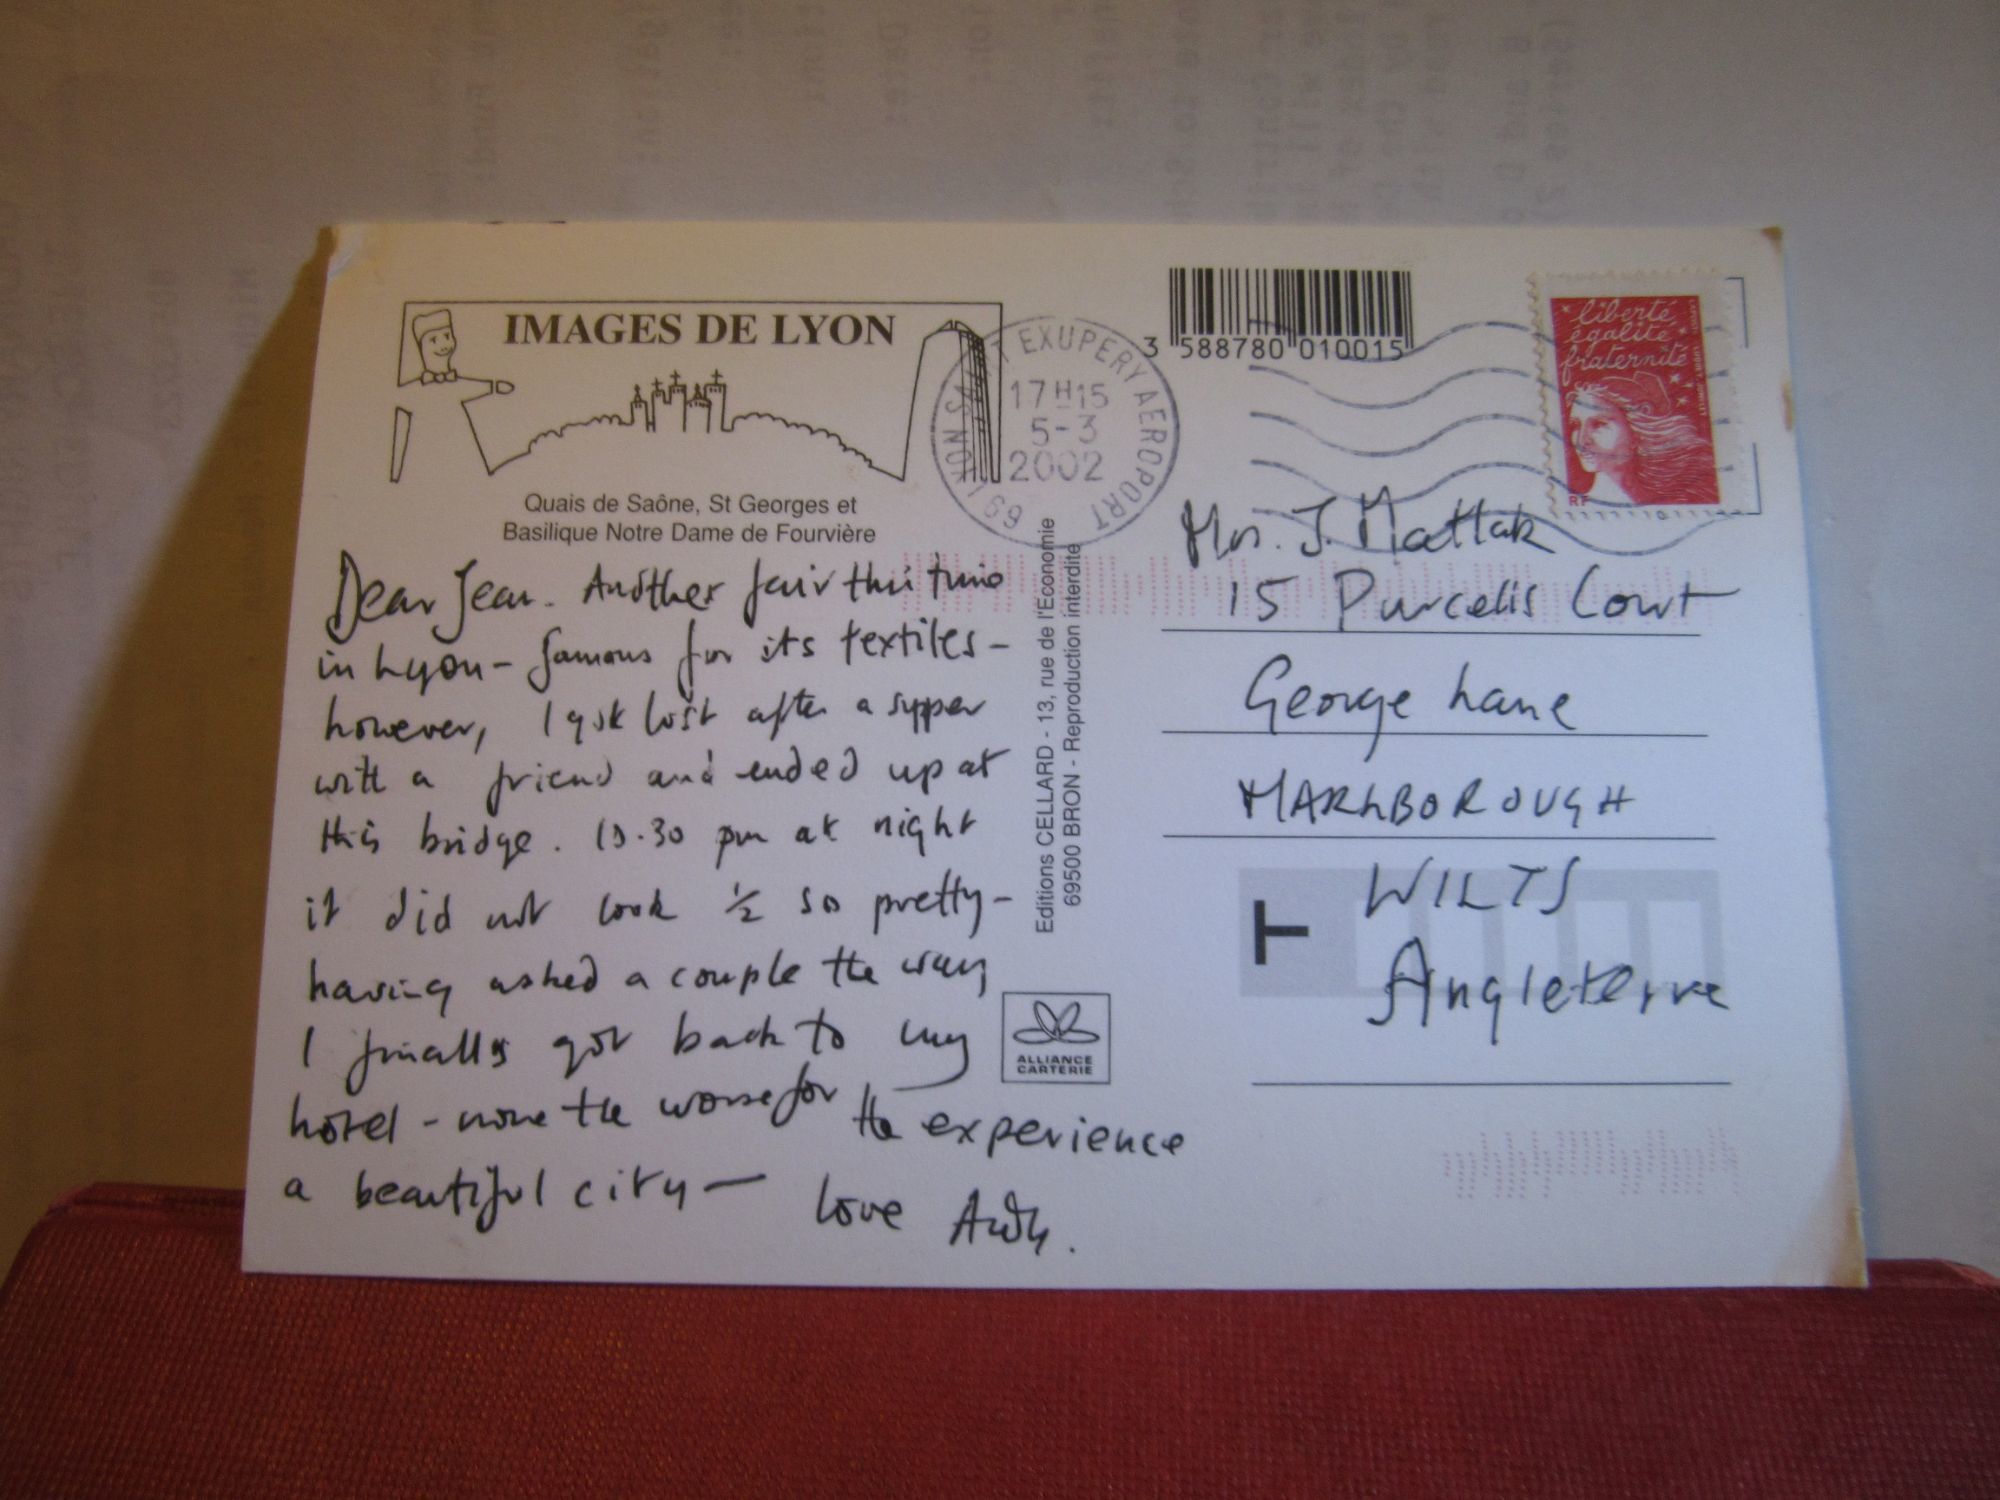 IMAGES DE LYON
Quais de Saône, St Georges et
Basilique Notre Dame de Fourvière
Dear Jean. Another fair this time
in Lyon - famous for its textiles -
however, I got lost after a supper
with a friend and ended up at
this bridge. 10.30 pm at night
it did not look ½ so pretty -
having asked a couple the way
I finally got back to my
hotel - none the worse for the experience
a beautiful city - love
Editions CELLARD - 13, rue de l'Economie
69500 BRON - Reproduction interdite
ALLIANCE
CARTERIE
69 LYON SAINT EXUPERY AEROPORT
17H15
5-3
2002
3 588780 010015
liberté
égalité
fraternité
RF
Mrs. J. Mattak
15 Purcells Court
George Lane
MARLBOROUGH
WILTS
Angleterre
T